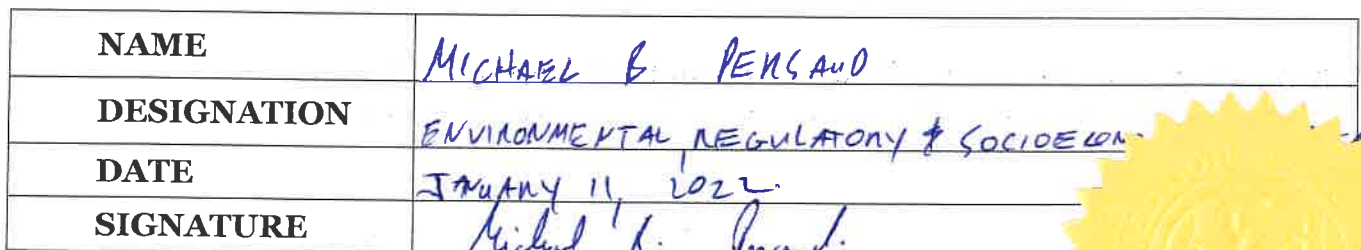 NAME MICHAEL B PERSAUD
DESIGNATION ENVIRONMENTAL, REGULATORY & SOCIOECON
DATE JANUARY 11, 2022.
SIGNATURE Michael B. Persaud.